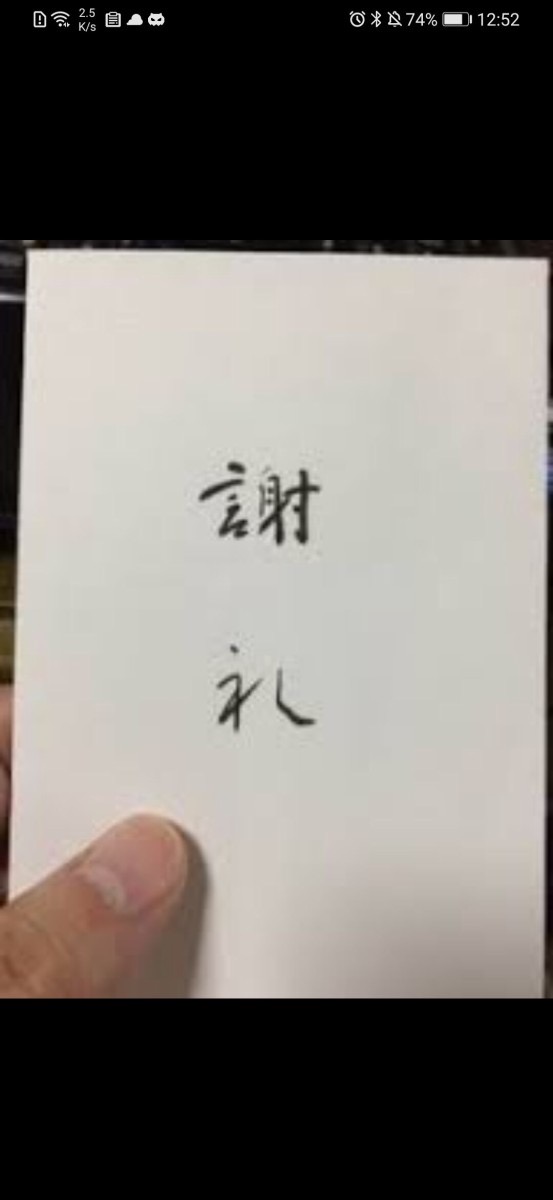 2.5
K/s
74%
12:52
謝
礼